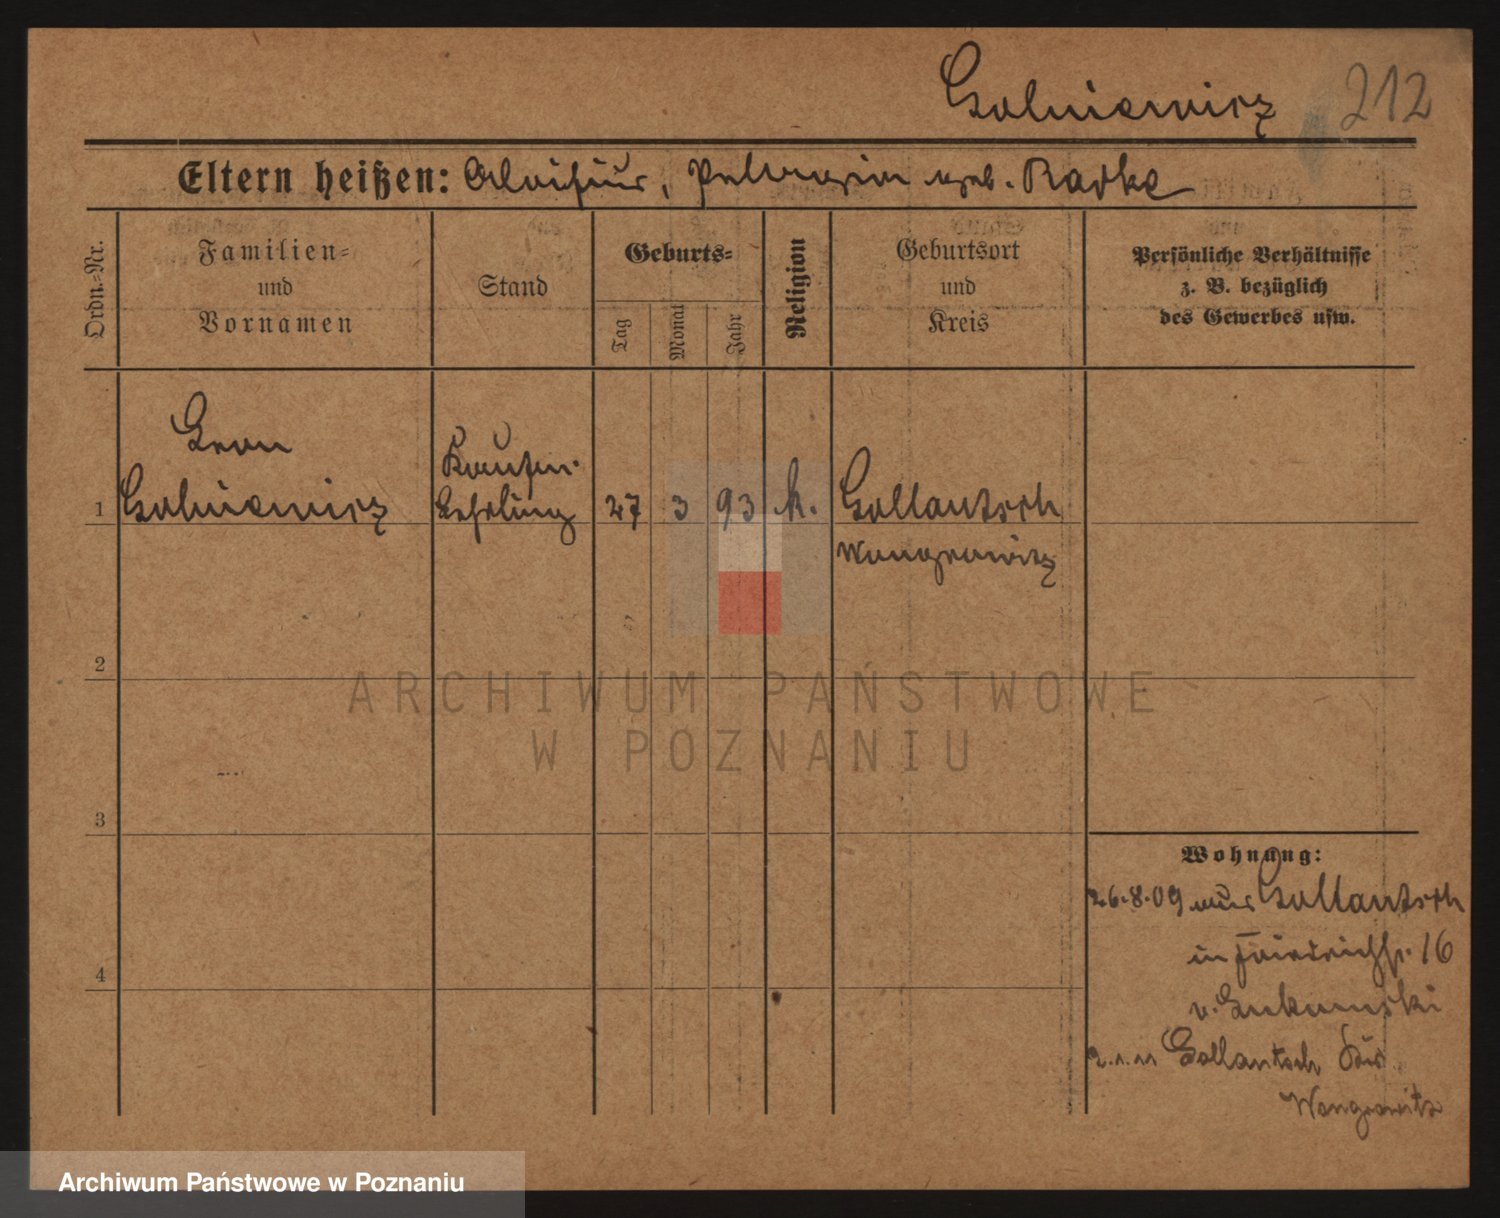 Golniewicz 212
Eltern heißen: Aloisius, Pelagia geb. Radke
Ordn.-Nr.
Familien-
und
Vornamen
Stand
Geburts-
Tag
Monat
Jahr
Religion
Geburtsort
und
Kreis
Persönliche Verhältnisse
z. B. bezüglich
des Gewerbes usw.
Leon
Kaufm.
1 Golniewicz Lehrling 27 3 93 k. Gollantsch
Wongrowitz
2
ARCHIWUM PAŃSTWOWE
W POZNANIU
3
Wohnung:
26.8.09 aus Gollantsch
in Friedrichstr. 16
4
b.
2.1.11 Gollantsch Krs
Wongrowitz
Archiwum Państwowe w Poznaniu